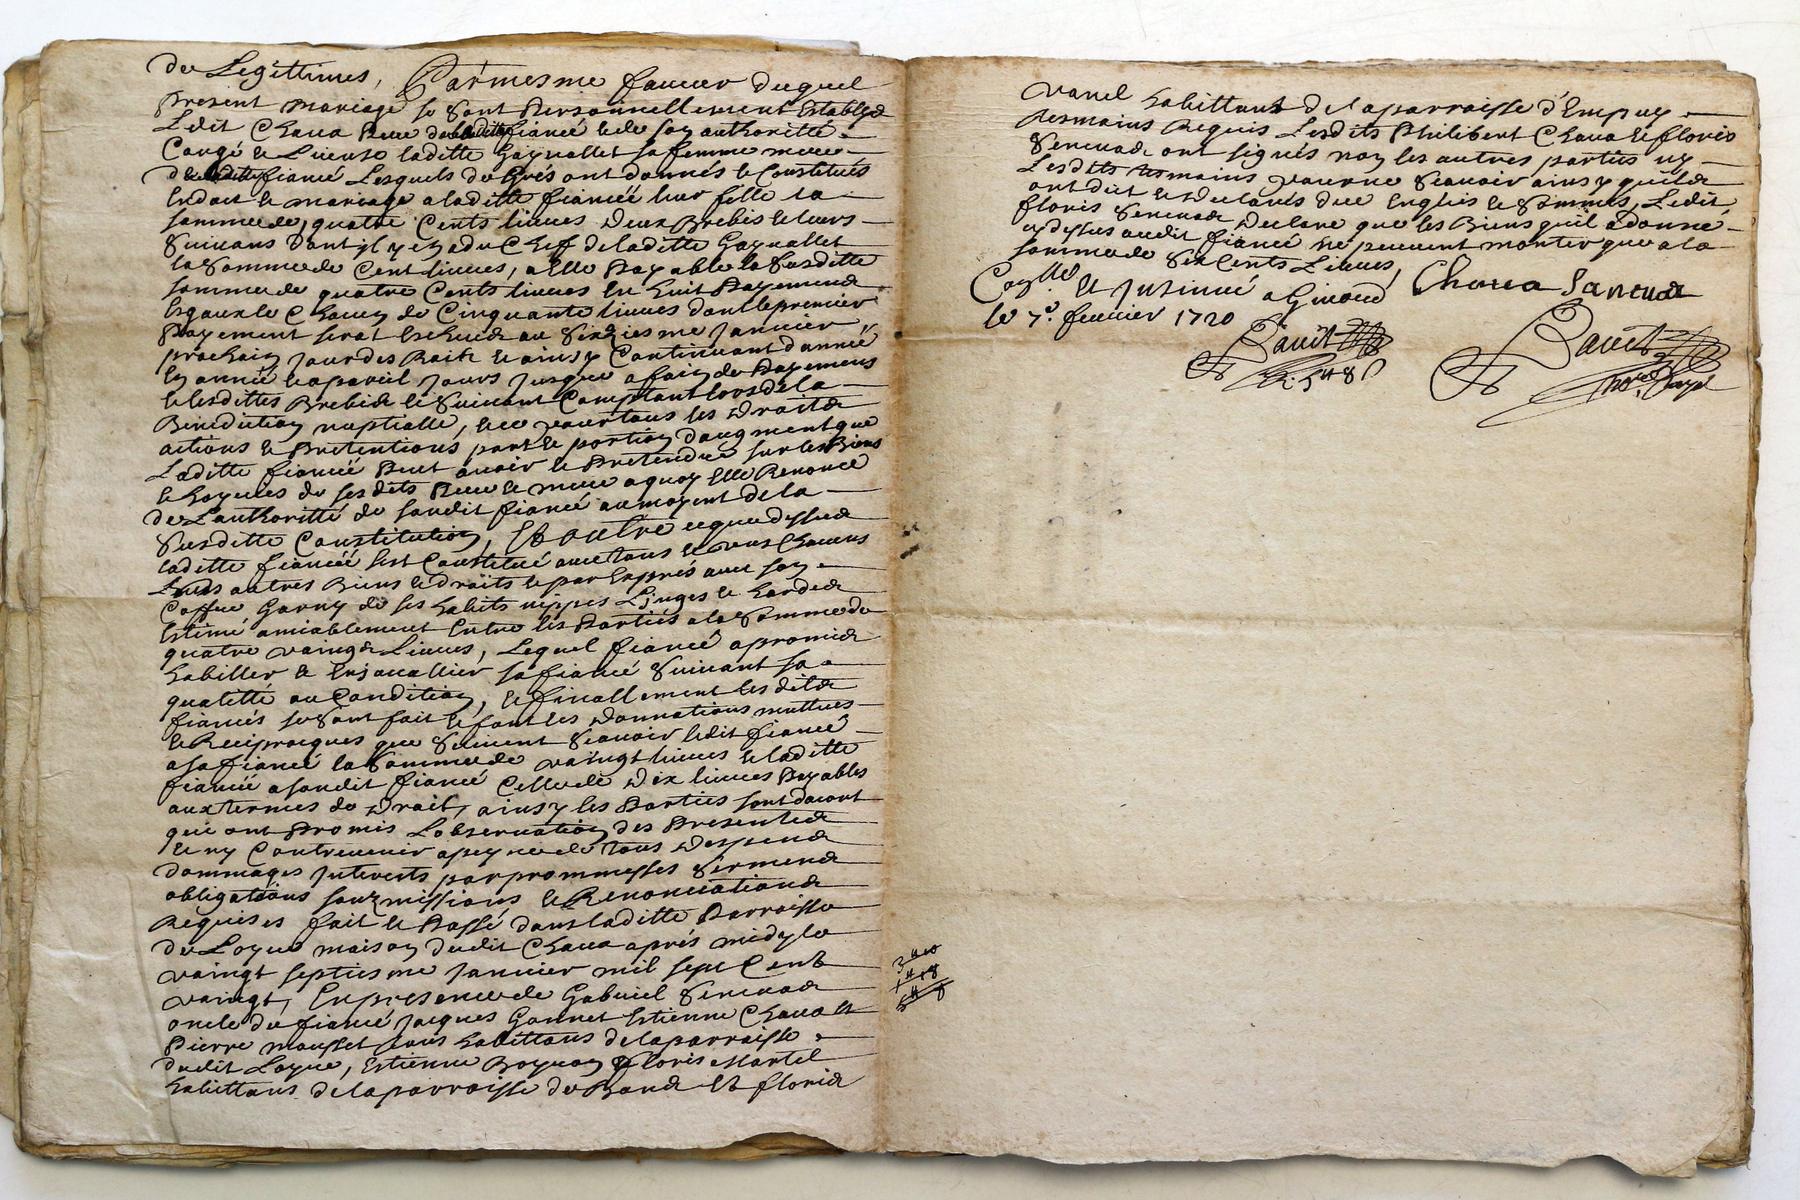 de Legittimes, Par mesme faueur duquel
present mariage se sont Personnellement Establys
Ledit Chaua Pere fiancé & de son authoritté
Congé & License laditte Gaynallet sa femme mere
fiancé Lesquels de Grés ont donnés & Constitués
En dot & mariage a laditte fianceé leur fille la
somme de quatre Cents liures Deux Brebis & leurs
Suiuans dont il y en a du Cheff de laditte Gaynallet
la Somme de Cent liures, a Elle Payable la Susditte
somme de quatre Cents liures En huit Payemens
Esgaux & Chacun de Cinquante liures dont le premier
Payement serat Escheu au Sixziesme Januier
prochain Jour des Rois & ainsy Continuant d'anneé
En anneé & a pareil Jours Jusques a fain de Payemens
& lesdittes Brebis & Suiuant Comptant lors de la
Benediction nuptialle, & ce pour tous les Droits
actions & Pretentions part & portion d'augment que
Laditte fianceé Peut auoir & Pretendre sur les Biens
& hoyries de sesdits Pere & mere a quoy Elle Renonce
de L'authoritté de sondit fiancé au moyent de la
Susditte Constitution, Et outre ce que dessus
laditte fianceé s'est Constitué auec tous & uns Chacuns
Ses autres Biens & droits & par Exprés auec son
Coffre Garny de ses habits nippes Linges & hardes
Estimé amiablement Entre les Parties a la Somme de
quatre vaingts Liures, Lequel fiancé a promis
habiller & Enjouallier sa fiancé Suiuant sa
qualitté ou Condition, & finallement lesdits
fiancés se sont fait & font les Donnations mutues
& Reciprocques que Suiuent Scauoir ledit fiancé
a sa fiancé la Somme de vaingt liures & laditte
fianceé a sondit fiancé Celle de Dix liures Payables
aux termes de Droit, ainsy les Parties sont dacort
qui ont Promis L'observation des Presentes
& ny Contreuenir a peyne de tous Despens
dommages Interests par prommesses Serments
obligations soumissions & Renonciations
Requises fait & Passé dans laditte Parroisse
de Loyue maison dudit Chaua aprés midy le
vaingt septiesme Januier mil sept Cent
vaingt, En presence de Gabriel Seneuas
oncle du fiancé Jacques Gonnet Estienne Chaua &
Pierre mousset tous habittans de la parroisse
dudit Loyue, Estienne & floris Martel
habittans de la parroisse de Band Et floris
vanel habittant de la parroisse d'Empuy
tesmoins Requis Lesdits Philibert Chaua & floris
Seneuas ont signés non les autres parties ny
Lesdits tesmoins Scauoir ainsy quils
ont dict & Declarés de Enquis & Sommés, Ledit
floris Seneuas Declare que les Biens quil a donné
cy dessus audit fiancé ne peuuent monter que a la
somme de Six Cents Liures,
Chaua Saneuas
Et Insinué a Giuord
le 7e. feurier 1720